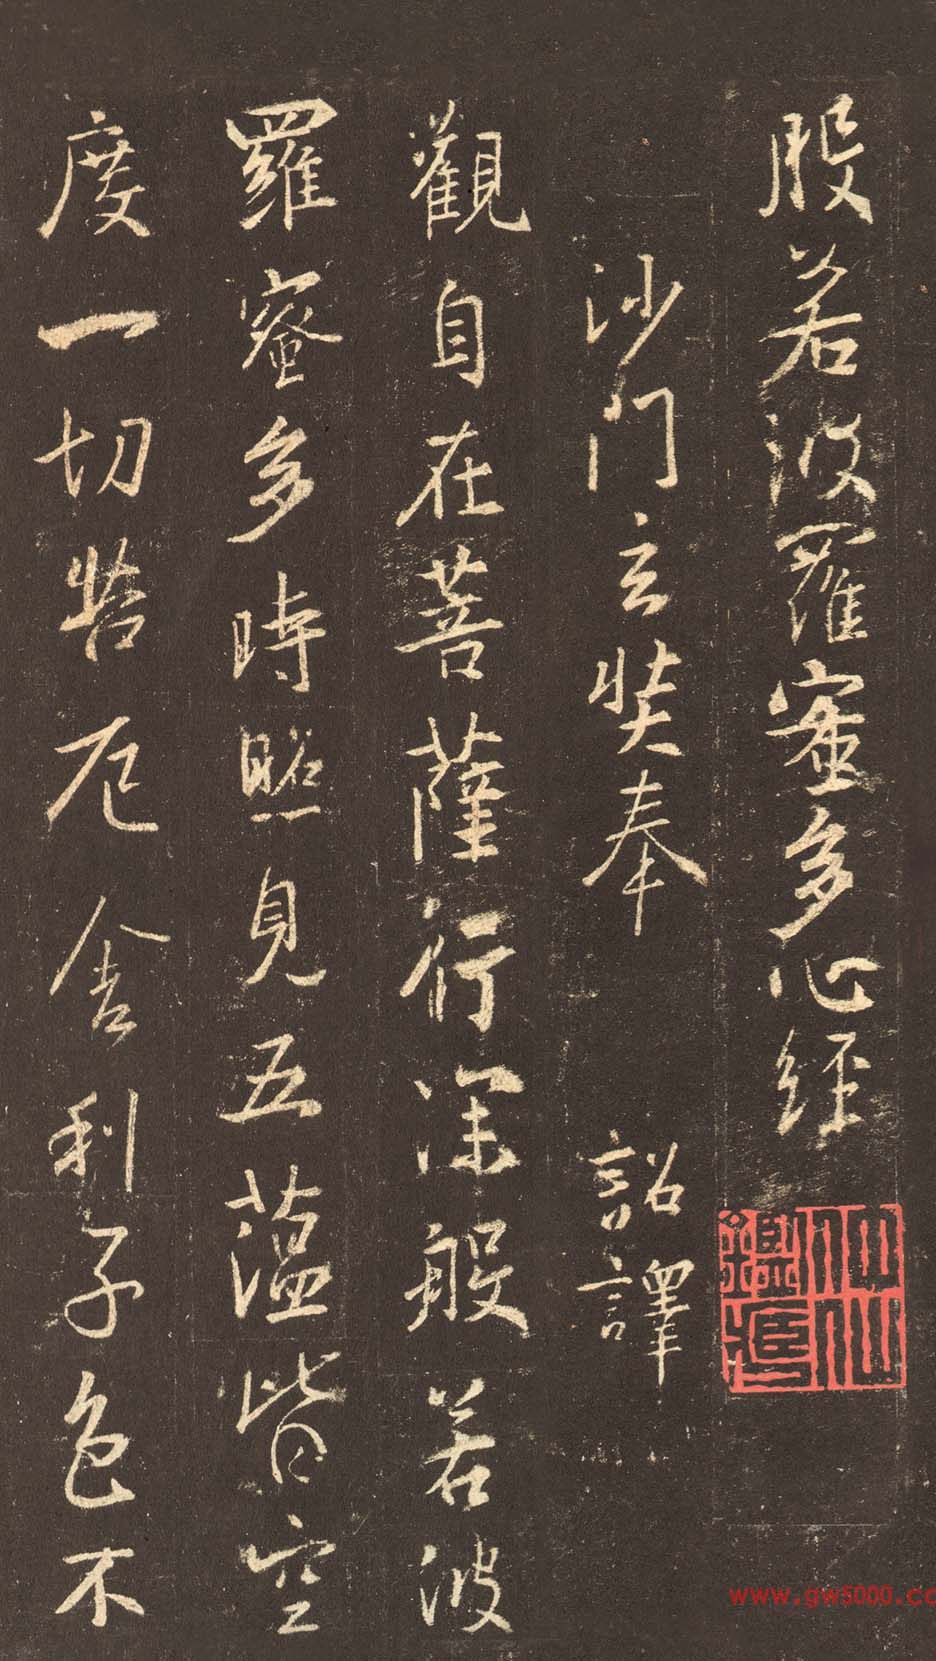 般若波羅蜜多心経
沙門玄奘奉 詔譯
觀自在菩薩行深般若波
羅蜜多時照見五藴皆空
度一切苦厄舎利子色不
www.gw5000.cc